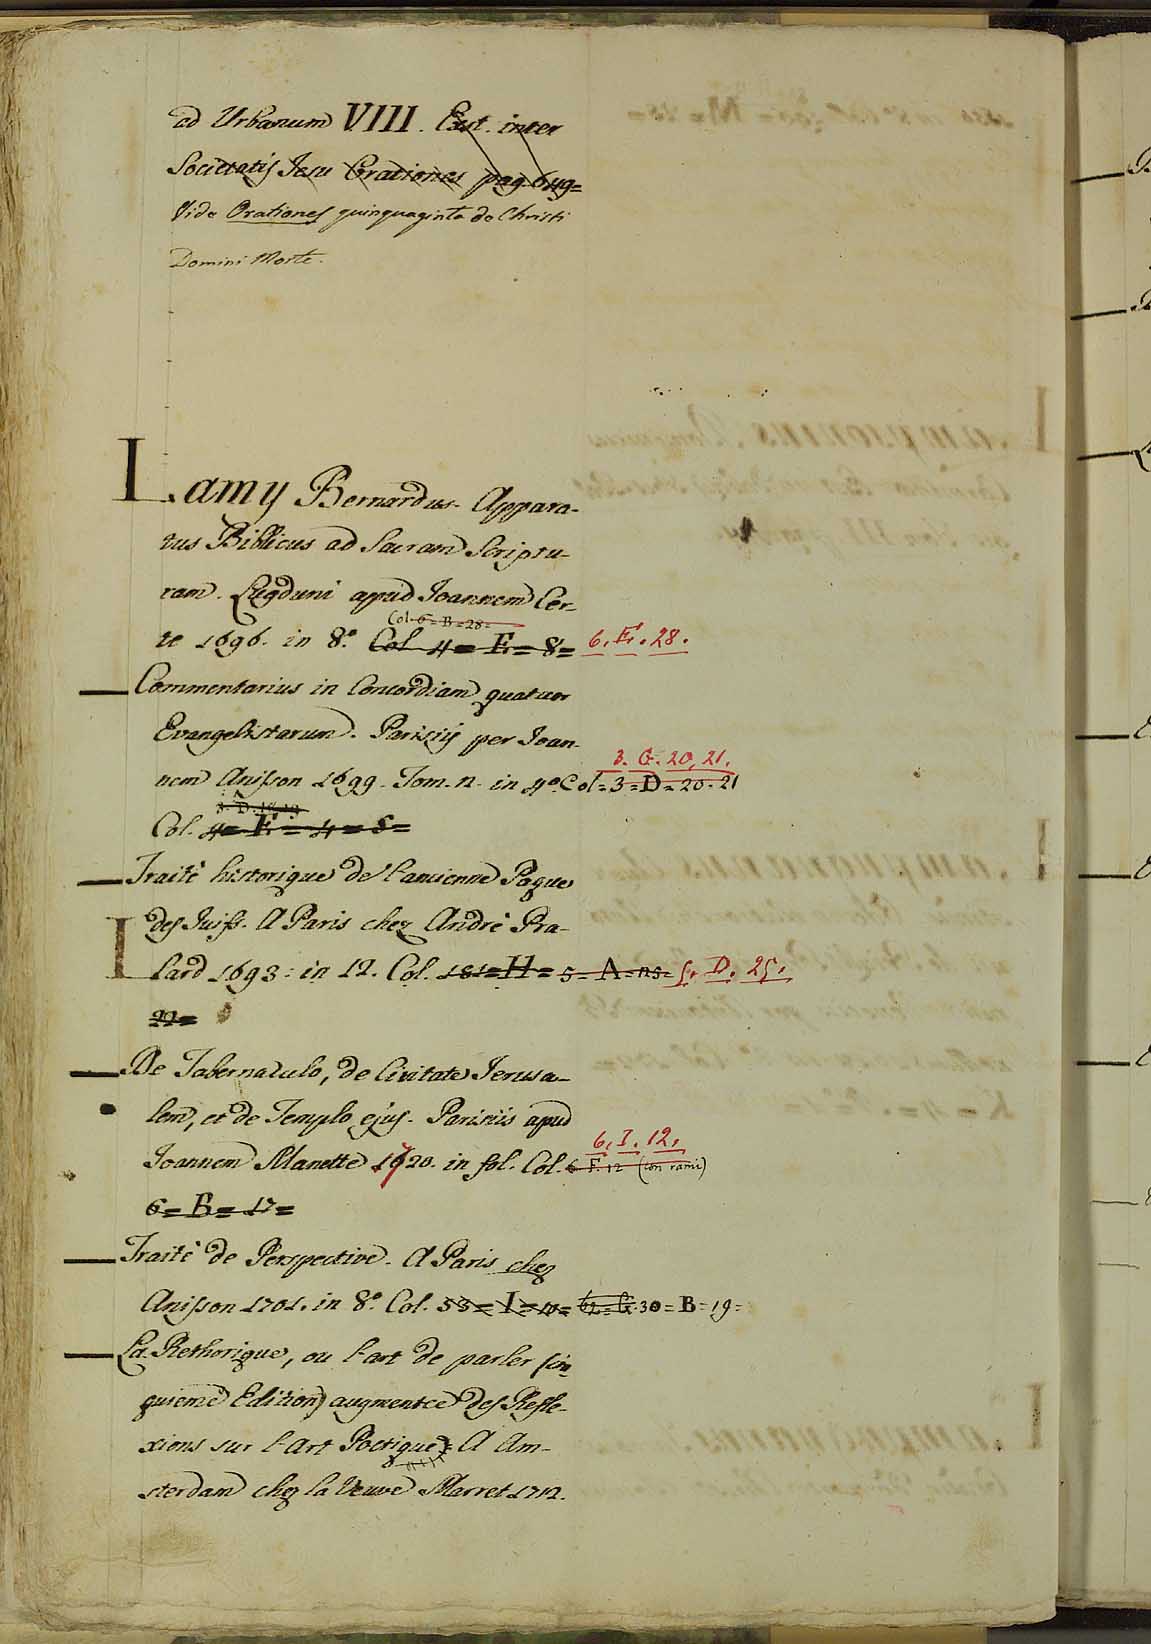 ad Urbanum VIII. Ext. inter
Societatis Jesu Orationes pag. 649=
Vide Orationes quinquaginta de Christi
Domini Morte.
Lamy Bernardus. Appara-
tus Biblicus ad Sacram Scriptu-
ram. Lugduni apud Joannem Cer-
Col. 6= B=28=
te 1696. in 8.º Col. 4= E= 8= 6. E. 28.
Commentarius in Concordiam quatuor
Evangelistarum. Parisijs per Joan-
3. G. 20, 21.
nem Anisson 1699. Tom. 2. in 4º. Col=3=D=20=21
3. D. 18.19
Col. 4= E= 4= 5=
Traité historique de l'ancienne Paque
des Juifs. A Paris chez André Pra-
lard 1693. in 12. Col. 181=H= 5=A=25= 5. D. 25.
22=
De Tabernaculo, de Civitate Jerusa-
lem, et de Templo ejus. Parisiis apud
6. I. 12.
Joannem Manette 1720. in fol. Col. 6. F. 12 (con rami)
6= B= 17=
Traité de Perspective. A Paris chez
Anisson 1701. in 8.º Col. 53= I= 62= G. 30= B=19=
La Rethorique, ou l'art de parler (cin-
quieme Edition) augmentée des Refle-
xions sur l'Art Poetique). A Am-
sterdam chez la Veuve Marret 1712.